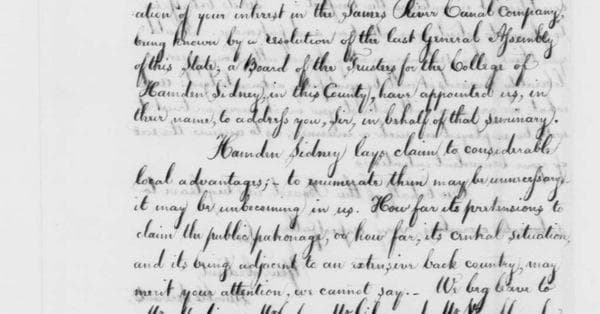 ation of your interest in the James River Canal Company,
being known by a resolution of the last General Assembly
of this State, a Board of the Trustees for the College of
Hamden Sidney, in this County, have appointed us, in
their name, to address you, Sir, in behalf of that seminary.
Hamden Sidney lays claim to considerable
local advantages;- to enumerate them may be unnecessary
it may be unbecoming in us. How far its pretensions to
claim the public patronage, or how far, its central situation,
and its being adjacent to an extensive back country, may
merit your attention, we cannot say.- We beg leave to